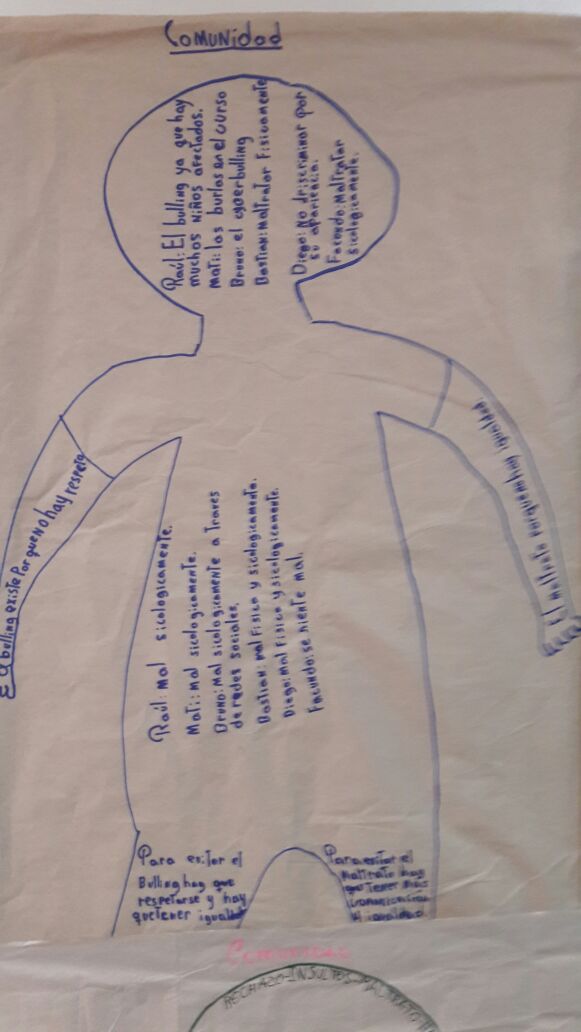 Comunidad
Raúl: El bulling ya que hay
muchos niños afectados.
Mati: las burlas en el curso
Bruno: el cyberbulling
Bastian: Maltratar Fisicamente
Diego: No driscriminar por
su apariencia.
Facundo: Maltratar
sicologicamente.
El bulling existe Porque No hay respeto
El maltrato porque no hay igualdad.
Raúl: mal sicologicamente.
Mati: mal sicologicamente.
Bruno: Mal sicologicamente a traves
de redes sociales.
Bastian: mal Fisico y sicologicamente.
Diego: mal Fisico y sicologicamente.
Facundo: se siente mal.
Para evitar el
Bulling hay que
respetarse y hay
que tener igualdad
Para evitar el
Maltrato hay
que tener mas
comunicacion
igualdad.
Comunidad
RECHAZO-INSULTOS-MALTRATO